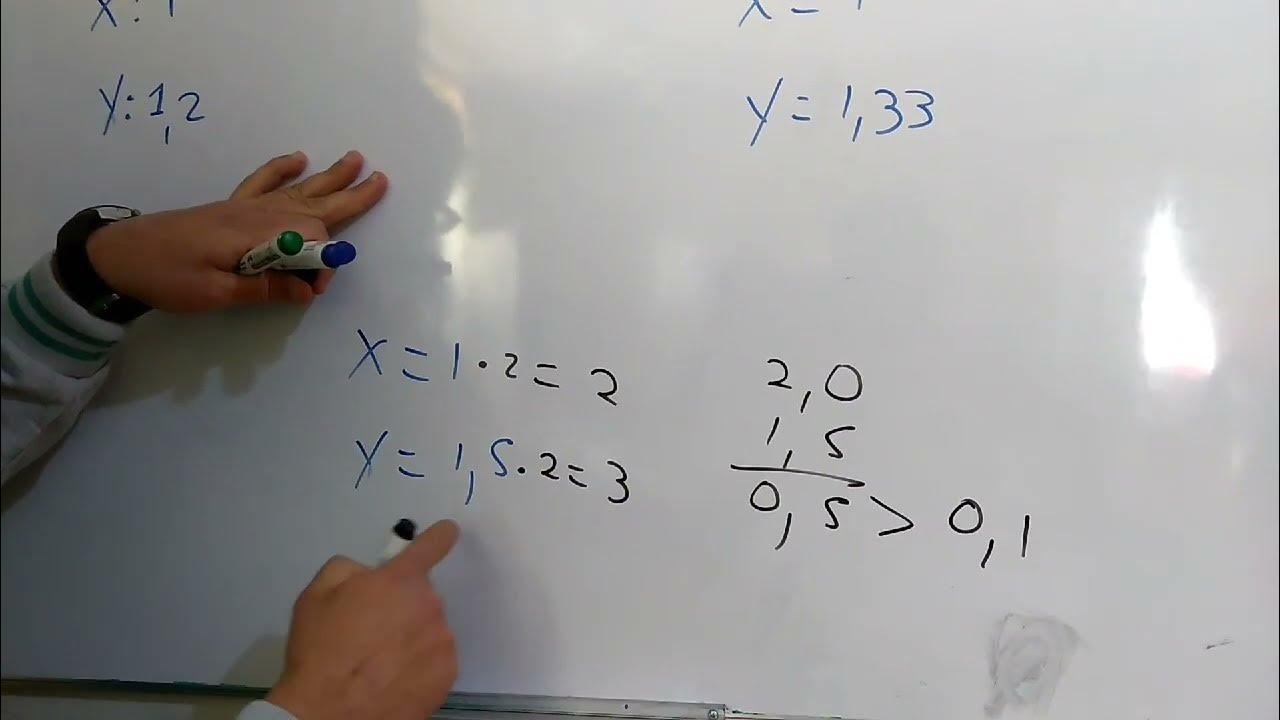 X: 1
Y: 1,2
Y = 1,33
X = 1 · 2 = 2
Y = 1,5 · 2 = 3
2,0
1,5
0,5 > 0,1